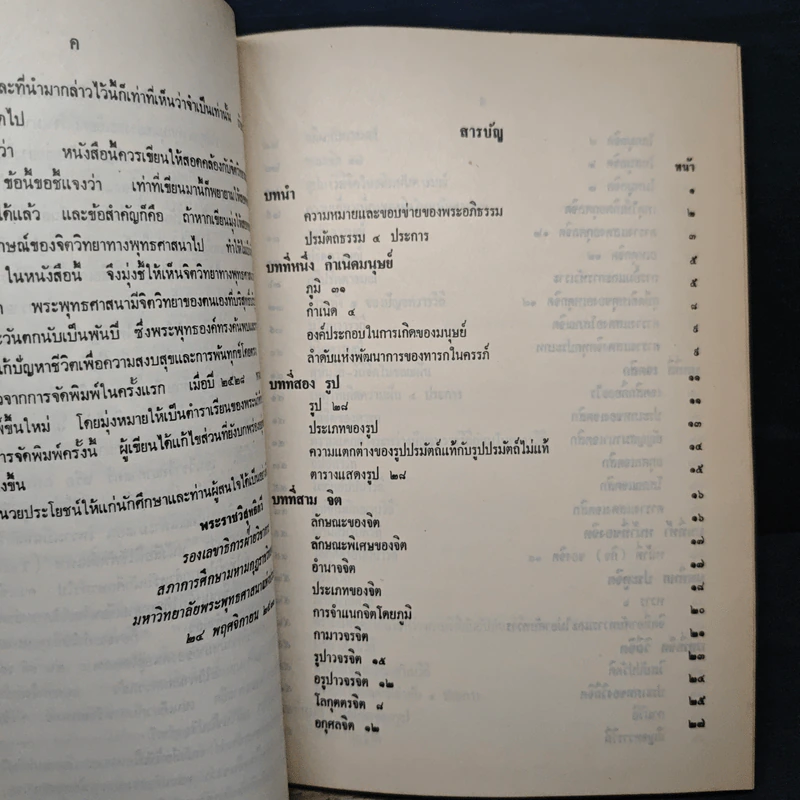 ค
ละที่นำมากล่าวไว้นี้ก็เท่าที่เห็นว่าจำเป็นเท่านั้น
ดไป
ว่า หนังสือนี้ควรเขียนให้สอดคล้องกับ
ข้อนี้ขอชี้แจงว่า เท่าที่เขียนมานี้ก็พยายาม
ได้แล้ว และข้อสำคัญก็คือ ถ้าหากเขียนมุ่ง
กษณ์ของจิตวิทยาทางพุทธศาสนาไป ทำให้
ในหนังสือนี้ จึงมุ่งชี้ให้เห็นจิตวิทยาทางพุทธ
ด พระพุทธศาสนามีจิตวิทยาของตนเองที่บริสุทธิ์
ะวันตกนับเป็นพันปี ซึ่งพระพุทธองค์ทรงค้นพบ
แก้ปัญหาชีวิตเพื่อความสงบสุขและการพ้นทุกข์
จากการจัดพิมพ์ในครั้งแรก เมื่อปี ๒๕๒๘
พ์ขึ้นใหม่ โดยมุ่งหมายให้เป็นตำราเรียนของ
การจัดพิมพ์ครั้งนี้ ผู้เขียนได้แก้ไขส่วนที่ยังบกพร่อง
ขึ้น
นวยประโยชน์ให้แก่นักศึกษาและท่านผู้สนใจได้
พระราชวิสุทธิกวี
รองเลขาธิการฝ่ายวิชาการ
สภาการศึกษามหามกุฏราช
มหาวิทยาลัยพระพุทธศาสนา
๒๔ พฤศจิกายน
สารบัญ
หน้า
บทนำ ๑
ความหมายและขอบข่ายของพระอภิธรรม ๒
ปรมัตถธรรม ๔ ประการ ๓
บทที่หนึ่ง กำเนิดมนุษย์ ๕
ภูมิ ๓๑ ๕
กำเนิด ๔ ๘
องค์ประกอบในการเกิดของมนุษย์ ๙
ลำดับแห่งพัฒนาการของทารกในครรภ์ ๙
บทที่สอง รูป ๑๑
รูป ๒๘ ๑๑
ประเภทของรูป ๑๓
ความแตกต่างของรูปปรมัตถ์แท้กับรูปปรมัตถ์ไม่แท้ ๑๔
ตารางแสดงรูป ๒๘ ๑๕
บทที่สาม จิต ๑๖
ลักษณะของจิต ๑๖
ลักษณะพิเศษของจิต ๑๗
อำนาจจิต ๑๗
ประเภทของจิต ๑๘
การจำแนกจิตโดยภูมิ ๒๐
กามาวจรจิต ๒๑
รูปาวจรจิต ๑๕ ๒๓
อรูปาวจรจิต ๑๒ ๒๔
โลกุตตรจิต ๘ ๒๕
อกุศลจิต ๑๒ ๒๗